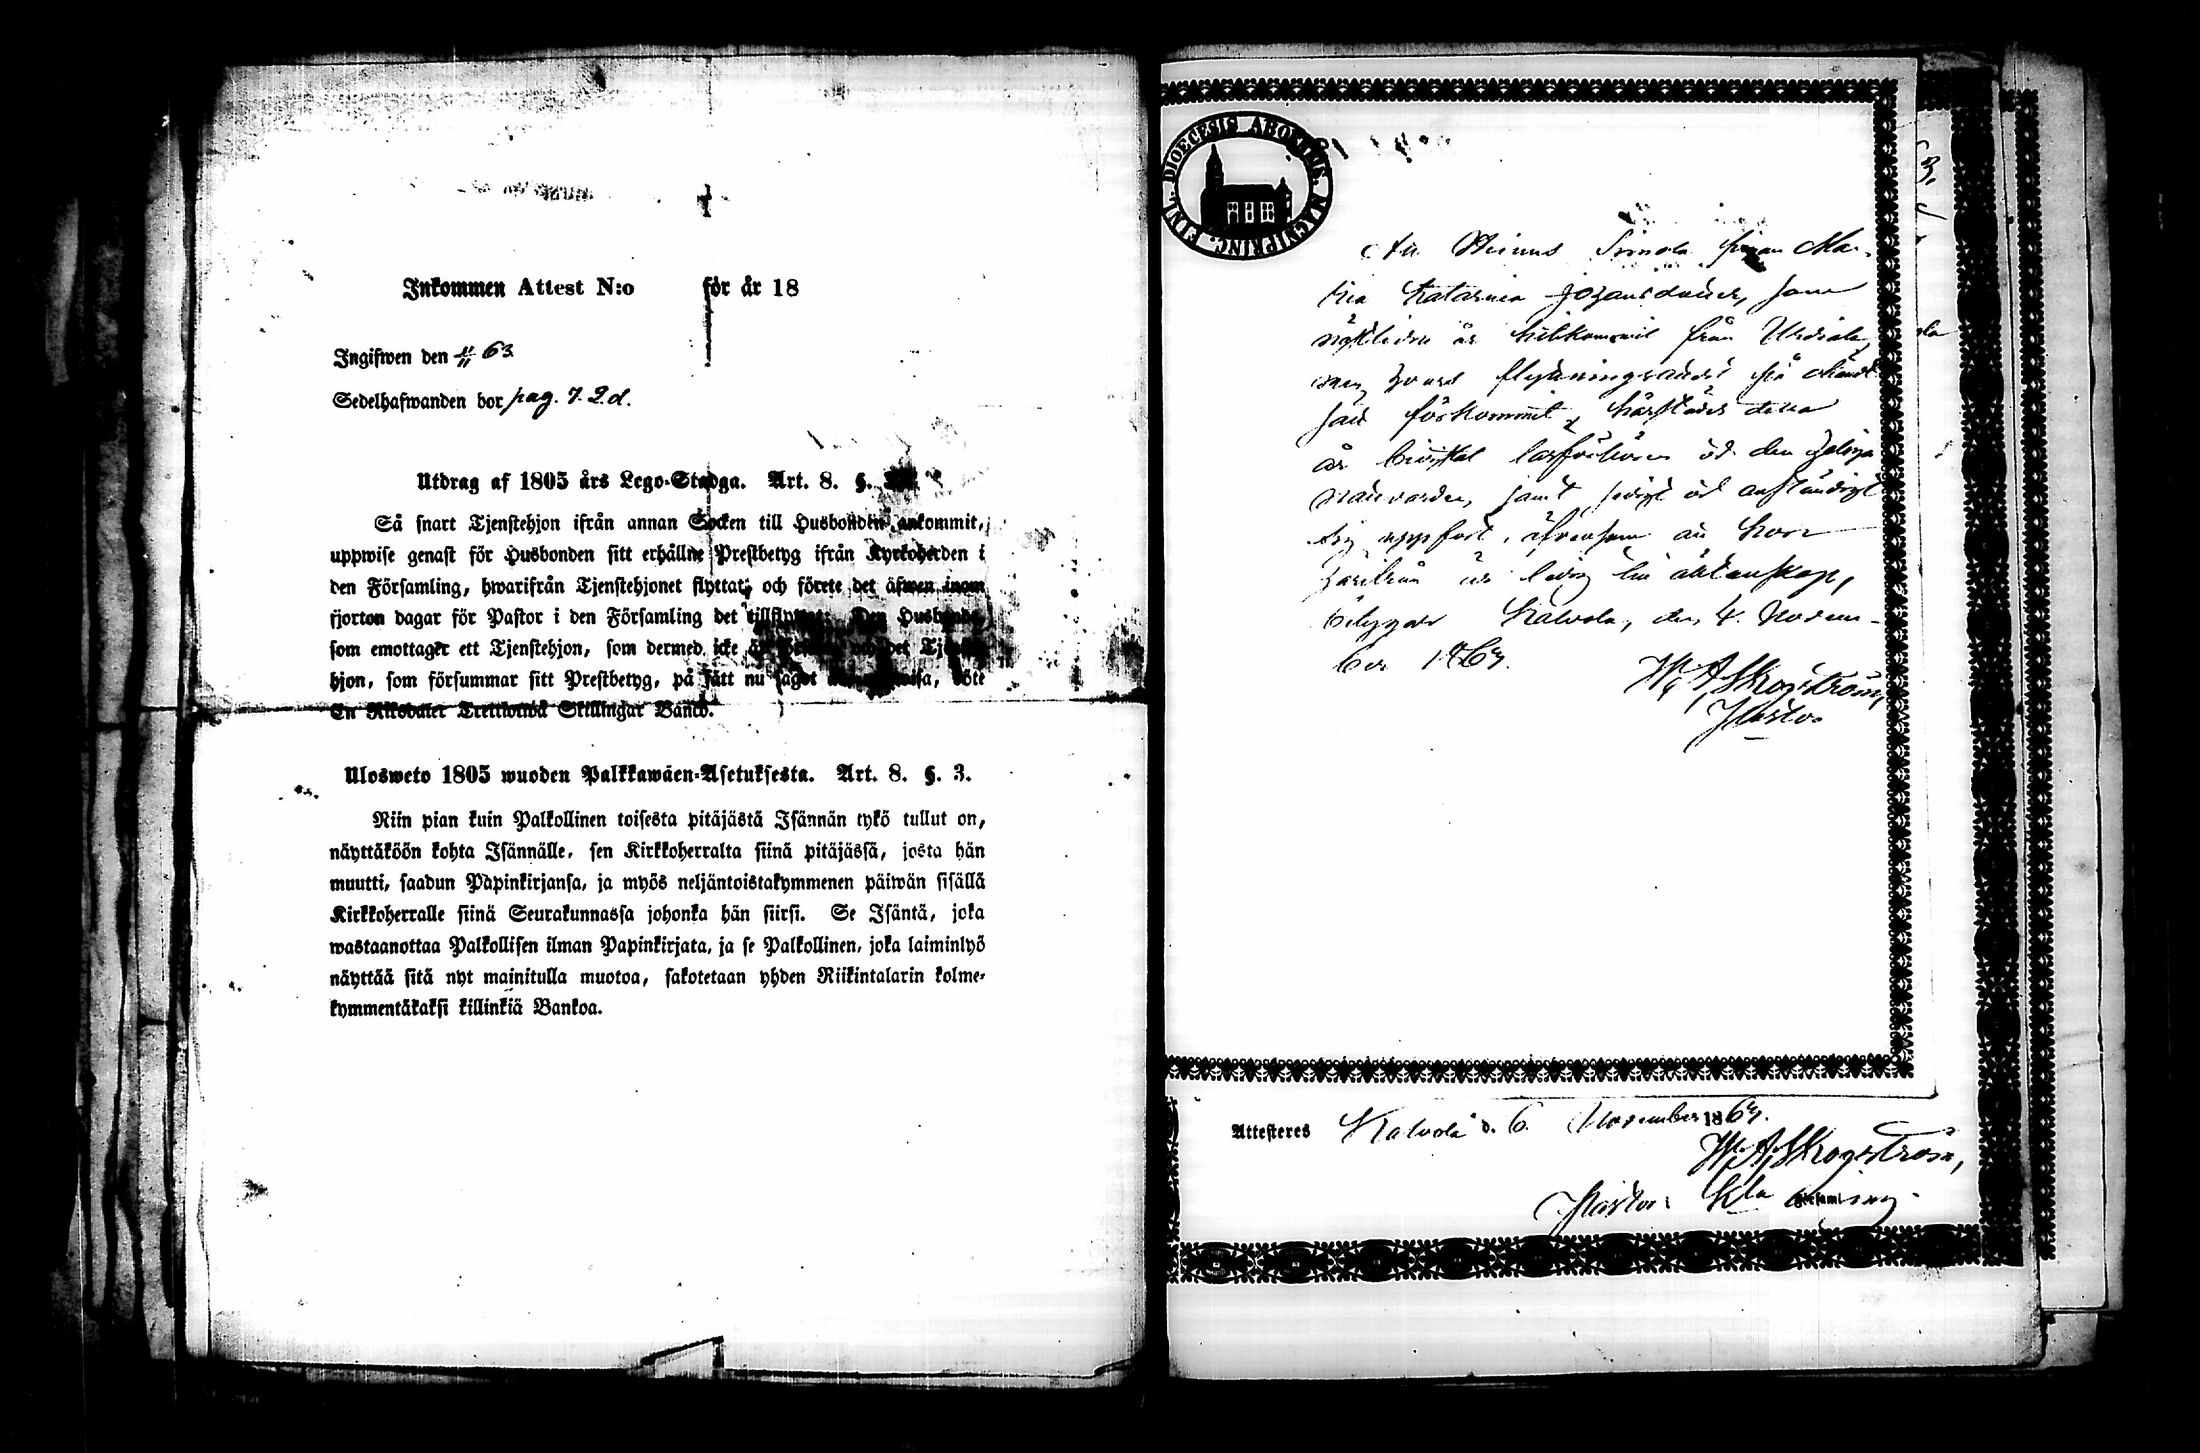 Inkommen Attest N:o för år 18
Ingifwen den 4/11 63
Sedelhafwanden bor pag. 7.2.d.
Utdrag af 1805 års Lego-Stadga. Art. 8. §.
Så snart Tjenstehjon ifrån annan Socken till Husbonden ankommit,
uppwise genast för Husbonden sitt erhållne Prestbetyg ifrån Kyrkoherden i
den Församling, hwarifrån Tjenstehjonet flyttat; och förete det äfwen inom
fjorton dagar för Pastor i den Församling det tillflyttat: Den Husbonde,
som emottager ett Tjenstehjon, som dermed icke det
hjon, som försummar sitt Prestbetyg, på sätt nu sagdt böte
En Riksdaler Trettiotwå Skillingar Banco.
Ulosweto 1805 wuoden Palkkawäen-Asetuksesta. Art. 8. §. 3.
Niin pian kuin Palkollinen toisesta pitäjästä Isännän tykö tullut on,
näyttäköön kohta Isännälle, sen Kirkkoherralta siinä pitäjässä, josta hän
muutti, saadun Papinkirjansa, ja myös neljäntoistakymmenen päiwän sisällä
Kirkkoherralle siinä Seurakunnassa johonka hän siirsi. Se Isäntä, joka
wastaanottaa Palkollisen ilman Papinkirjata, ja se Palkollinen, joka laiminlyö
näyttää sitä nyt mainitulla muotoa, sakotetaan yhden Riikintalarin kolme-
kymmentäkaksi killinkiä Bankoa.
DIOECESIS ABOENSIS. MAGNI PRINC. FINL.
Att pigan Ma-
ria Katarina Johansdotter, som
nyttliden är hitkommit från Urdiala,
men hvars flyttningsattest
förkommit, härstädes detta
år bivistat läsförhören och den heliga
nattvarden, samt och anständigt
sig uppfört, äfvensom att hon
härifrån är ledig till äktenskap,
betygar Kalvola, den 4. Novem-
ber 1863.
W. A. Skogström,
Pastor
Attesteres Kalvola d. 6. November 1863.
W. A. Skogström,
Pastor Församling.